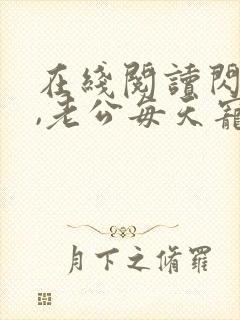 在綫閱讀閃
,老公每天寵
月下之脩羅